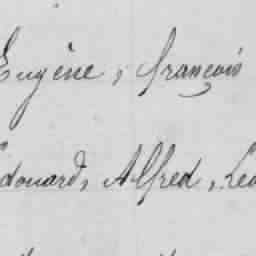 Eugène, françois
Edouard, Alfred, Leo